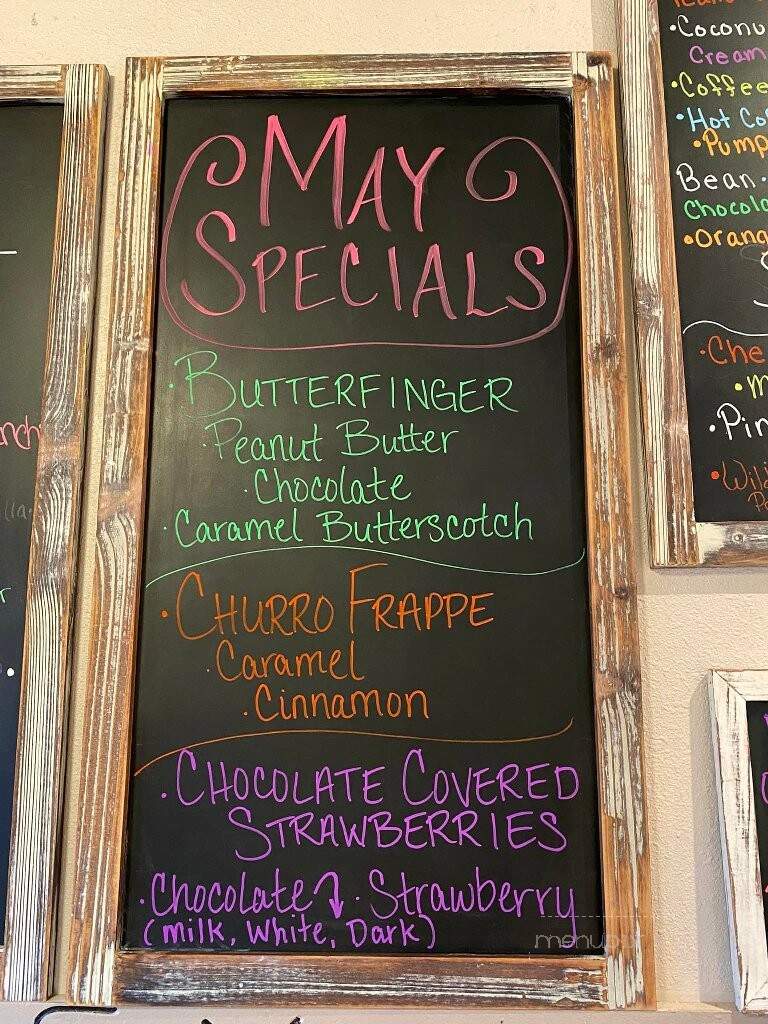 MAY
SPECIALS
· BUTTERFINGER
· Peanut Butter
· Chocolate
· Caramel Butterscotch
· CHURRO FRAPPE
· Caramel
· Cinnamon
· CHOCOLATE COVERED
STRAWBERRIES
· Chocolate ⤵ · Strawberry
(Milk, White, Dark)
• Coconu
Cream
• Coffee
• Hot Co
• Pump
Bean •
Chocola
• Orang
• Che
• Pin
• Wil